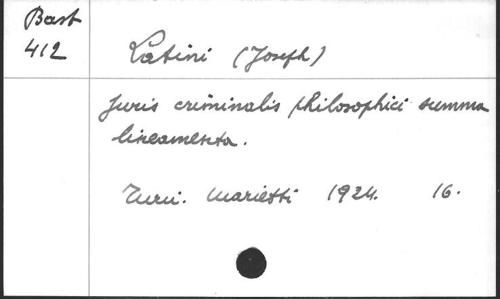 Bast
412
Latini (Joseph)
Juris criminalis philosophici summa
lineamenta.
Turii. Marietti 1924. 16.